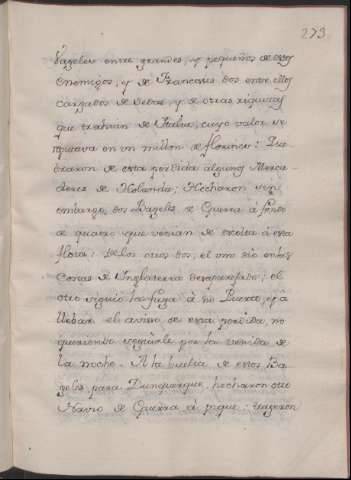 273
Vageles entre grandes, y pequeños de esos
enemigos, y de Franceses dos entre ellos
cargados de sedas, y de otras riquezas
que trahian de Italia, cuyo valor se
en un millon de florines:
de esta perdida algunos Merca-
deres de Holanda; Hecharon sin
embargo, dos Bageles de Guerra à fondo
de quatro que venian de escolta à esta
flota: De los otros dos, el uno dio en las
Costas de Inglaterra desaparejado; el
otro siguió la fuga à su Puerto, p.ª
llebar el aviso de esta perdida, no
queriendo seguirle por la venida de
la noche. A la buelta de estos Ba-
geles para Dunquerque, hecharon otro
Navio de Guerra à pique: